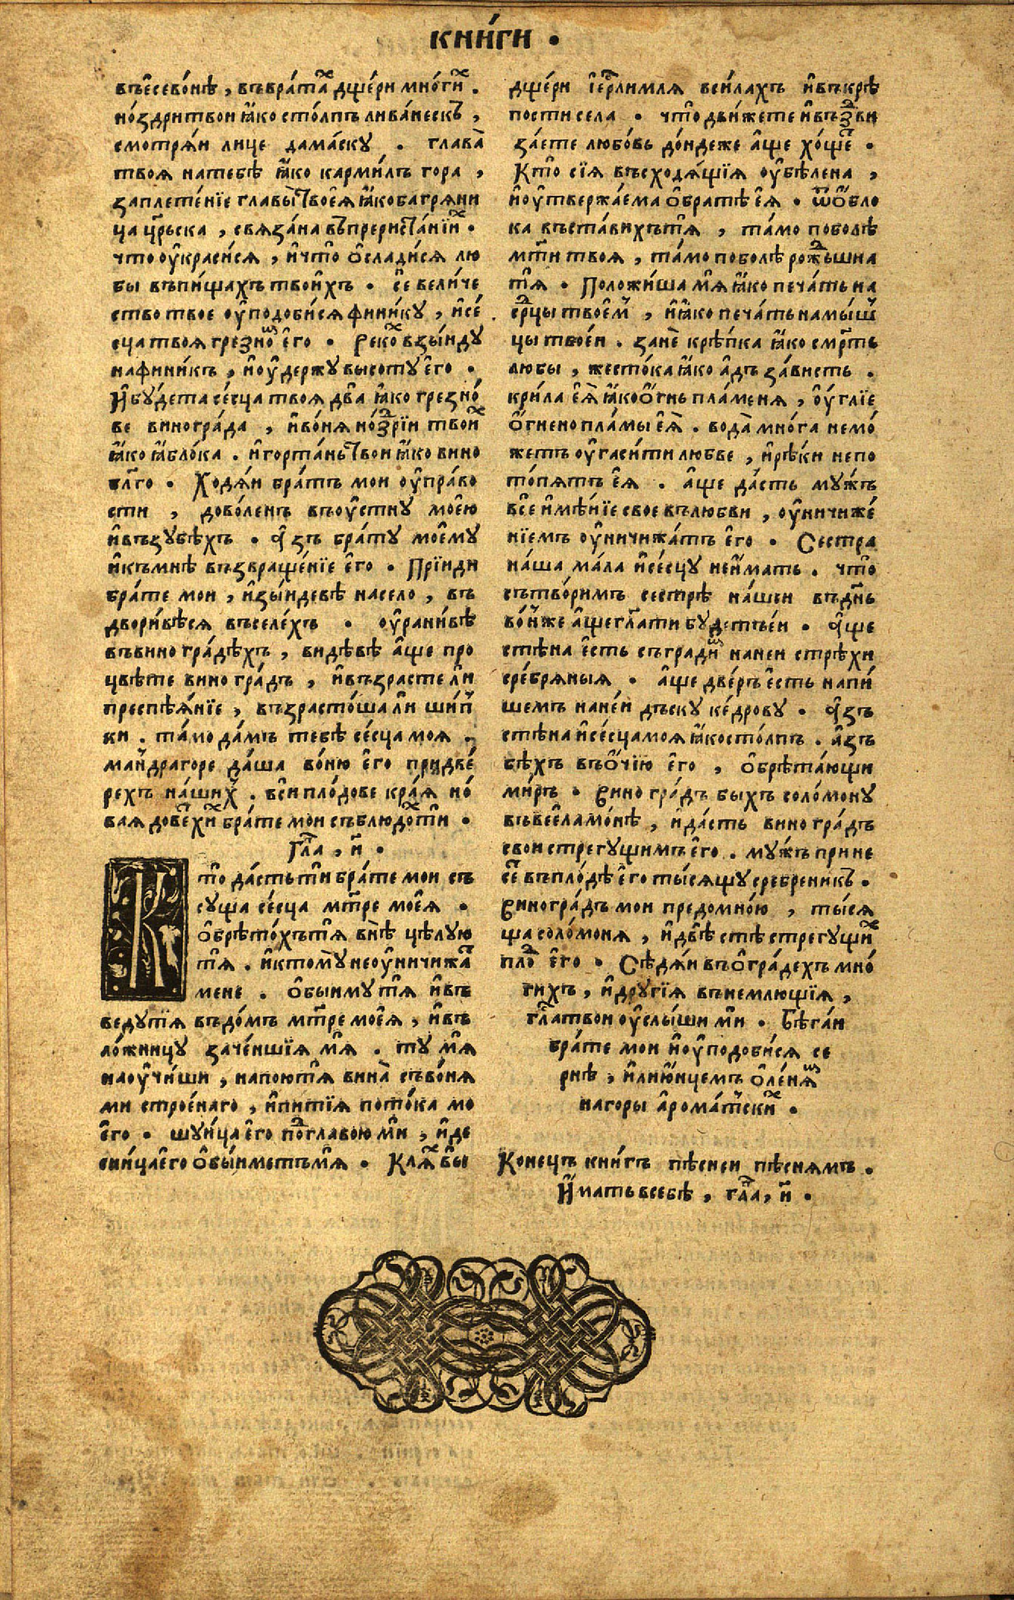 КНИ́ГИ .
въ є҆сево́нѣ , въврата́хъ дще́ри мно́гихъ .
но́здри твои ꙗ҆́ко сто́лпъ лива́нескъ ,
смотрѧ́и лице дама́ску . глава̀
твоѧ на тебѣ ꙗ҆́ко карми́лъ гора ,
заплете́нїе главы̀ твоеѧ̀ ꙗ҆́ко багрѧни
ца ца́рьска , свѧза́на въ прериста́нїихъ .
что оу҆краси́сѧ , и҆ что́ о҆слади́сѧ лю
бы въ пи́щахъ твои́хъ . се вели́че
ство твое оу҆подо́бисѧ фини́ку , и҆ се́
сца твоѧ грезно́мъ є҆го . Реко́хъ взы́иду
на фини́къ , и҆ оу҆держу высоту є҆го .
И҆ бу́дета се́сца твоѧ два̀ ꙗ҆́ко грезно́
ве виногра́да , и҆ во́нѧ но́здрїи твои́хъ
ꙗ҆́ко ꙗ҆́блока . и҆ горта́нь твои ꙗ҆́ко вино
бл҃го . Ходѧ́и бра́тъ мои оу҆пра́во
сти , дово́ленъ въ оу҆стну мое́ю
и҆ въ зубѣ́хъ . А҆́зъ брату мое҆му
и҆ къ мнѣ възвраще́нїе є҆го . Прїиди
бра́те мои , и҆зы́идевѣ на село , въ
двори́вѣсѧ въ селе́хъ . оу҆ранивѣ
въ виногра́дѣхъ , ви́дѣвѣ а҆́ще про
цвѣте виногра́дъ , и҆ възрасте ли
преспѣѧ́нїе , възрасто́ша ли ши́п
ки . та́мо да́мъ тебѣ се́сца моѧ .
ма́ндрагоре да́ша во́ню є҆го при две́
рехъ на́шихъ . вси пло́дове кра́ѧ но́
ваѧ до ве́тхихъ бра́те мои съблюдо́хъ ти .
Гла̀ , и҃ .
Кто́ да́сть тѝ бра́те мои съ
суща се́сца мт҃ре мое҆ѧ .
о҆брѣто́хъ тѧ внѣ̀ цѣлую
тѧ . и҆ к тому не оу҆ничижа́тъ
мене . о҆быиму тѧ и҆ въ
веду тѧ въ до́мъ мт҃ре мое҆ѧ , и҆ въ
ло́жницу заче́ншїѧ мѧ̀ . ту мѧ̀
наоу҆чи́ши , напою́ тѧ вина̀ съ во́нѧ
ми строе́наго , и҆ питїѧ пото́ка мо
є҆го . шу́ица є҆го под главою мѝ , и҆ де
сни́ца є҆го о҆бы́иметъ мѧ . Клѧ́хъ вы
дще́ри і҆ер҇лимлѧ в си́лахъ и҆ въ крѣ
пости села . что̀ дви́жете и҆ въздви
за́ете любо́вь до́ндеже а҆́ще хо́щетъ .
Кто̀ сїѧ въсходѧ́щїѧ оу҆бѣ́лена ,
и҆ оу҆твержа́ема о҆ братѣ є҆ѧ . ѿ ѻ҆́бло
ка въстави́хъ тѧ , та́мо поболѣ
мт҃и твоѧ , та́мо поболѣ рожьшиа
тѧ . Положи́ша мѧ ꙗ҆́ко печа́ть на
ср҃цы твое҆мъ , и҆ ꙗ҆́ко печа́ть на мы́ш
цы твое́и . занѐ крѣ́пка ꙗ҆́ко смр҃ть
любы , жесто́ка ꙗ҆́ко а҆́дъ за́висть .
крила є҆ѧ̀ ꙗ҆́ко ѻ҆́гнь пла́менѧ , оу҆́глїе
ѻ҆́гнено пла́мы є҆ѧ̀ . вода̀ мно́га не мо́
жетъ оу҆гаси́ти любве , и҆ рѣ́ки не по
то́пѧтъ є҆ѧ . а҆́ще да́сть му́жъ
всѐ и҆мѣ́нїе свое въ любви , оу҆ничиже́
нїемъ оу҆ничижа́тъ є҆го . Сестра
на́ша ма́ла и҆ се́сцу не и҆́мать . что̀
сътво́римъ сестрѣ на́шеи въ дн҃ь
во́ньже а҆́ще гл҃ати бу́детъ еи . А҆́ще
стѣна є҆́сть съгради́мъ на неи стрѣхи
сре́брѧныѧ . а҆́ще две́рь є҆́сть напи́
шемъ на не́и дъску ке́дрову . А҆́зъ
стѣна и҆ се́сца моѧ ꙗ҆́ко сто́лпъ . а҆́зъ
бѣ́хъ въ ѻ҆́чїю є҆го , о҆брѣта́ющи
ми́ръ . Виногра́дъ быхъ соло́мону
въ вее҆ламо́нѣ , и҆ да́сть виногра́дъ
свои стрегущимъ є҆го . му́жъ прине
се́тъ въ пло́дѣ є҆го ты́сѧщу сре́бреникъ .
Виногра́дъ мои предо мно́ю , ты́сѧ
ща соло́монѧ , и҆ двѣ̀ стѣ стрегу́щихъ
пло́дъ є҆го . Сѣдѧ́и въ о҆гра́дехъ мно́
гихъ , и҆ дру́гїѧ вънемлющїѧ ,
гла́съ твои оу҆слы́ши мѝ . Бѣга́и
бра́те мои и҆ оу҆подо́бисѧ се
рнѣ , и҆ли ю҆́нцемъ о҆ле́нѧмъ
на горы а҆рома́тскихъ .
Коне́цъ кни́гъ пѣ́снеи пѣ́снѧмъ .
И҆́мать в себѣ , гла̀ , и҃ .